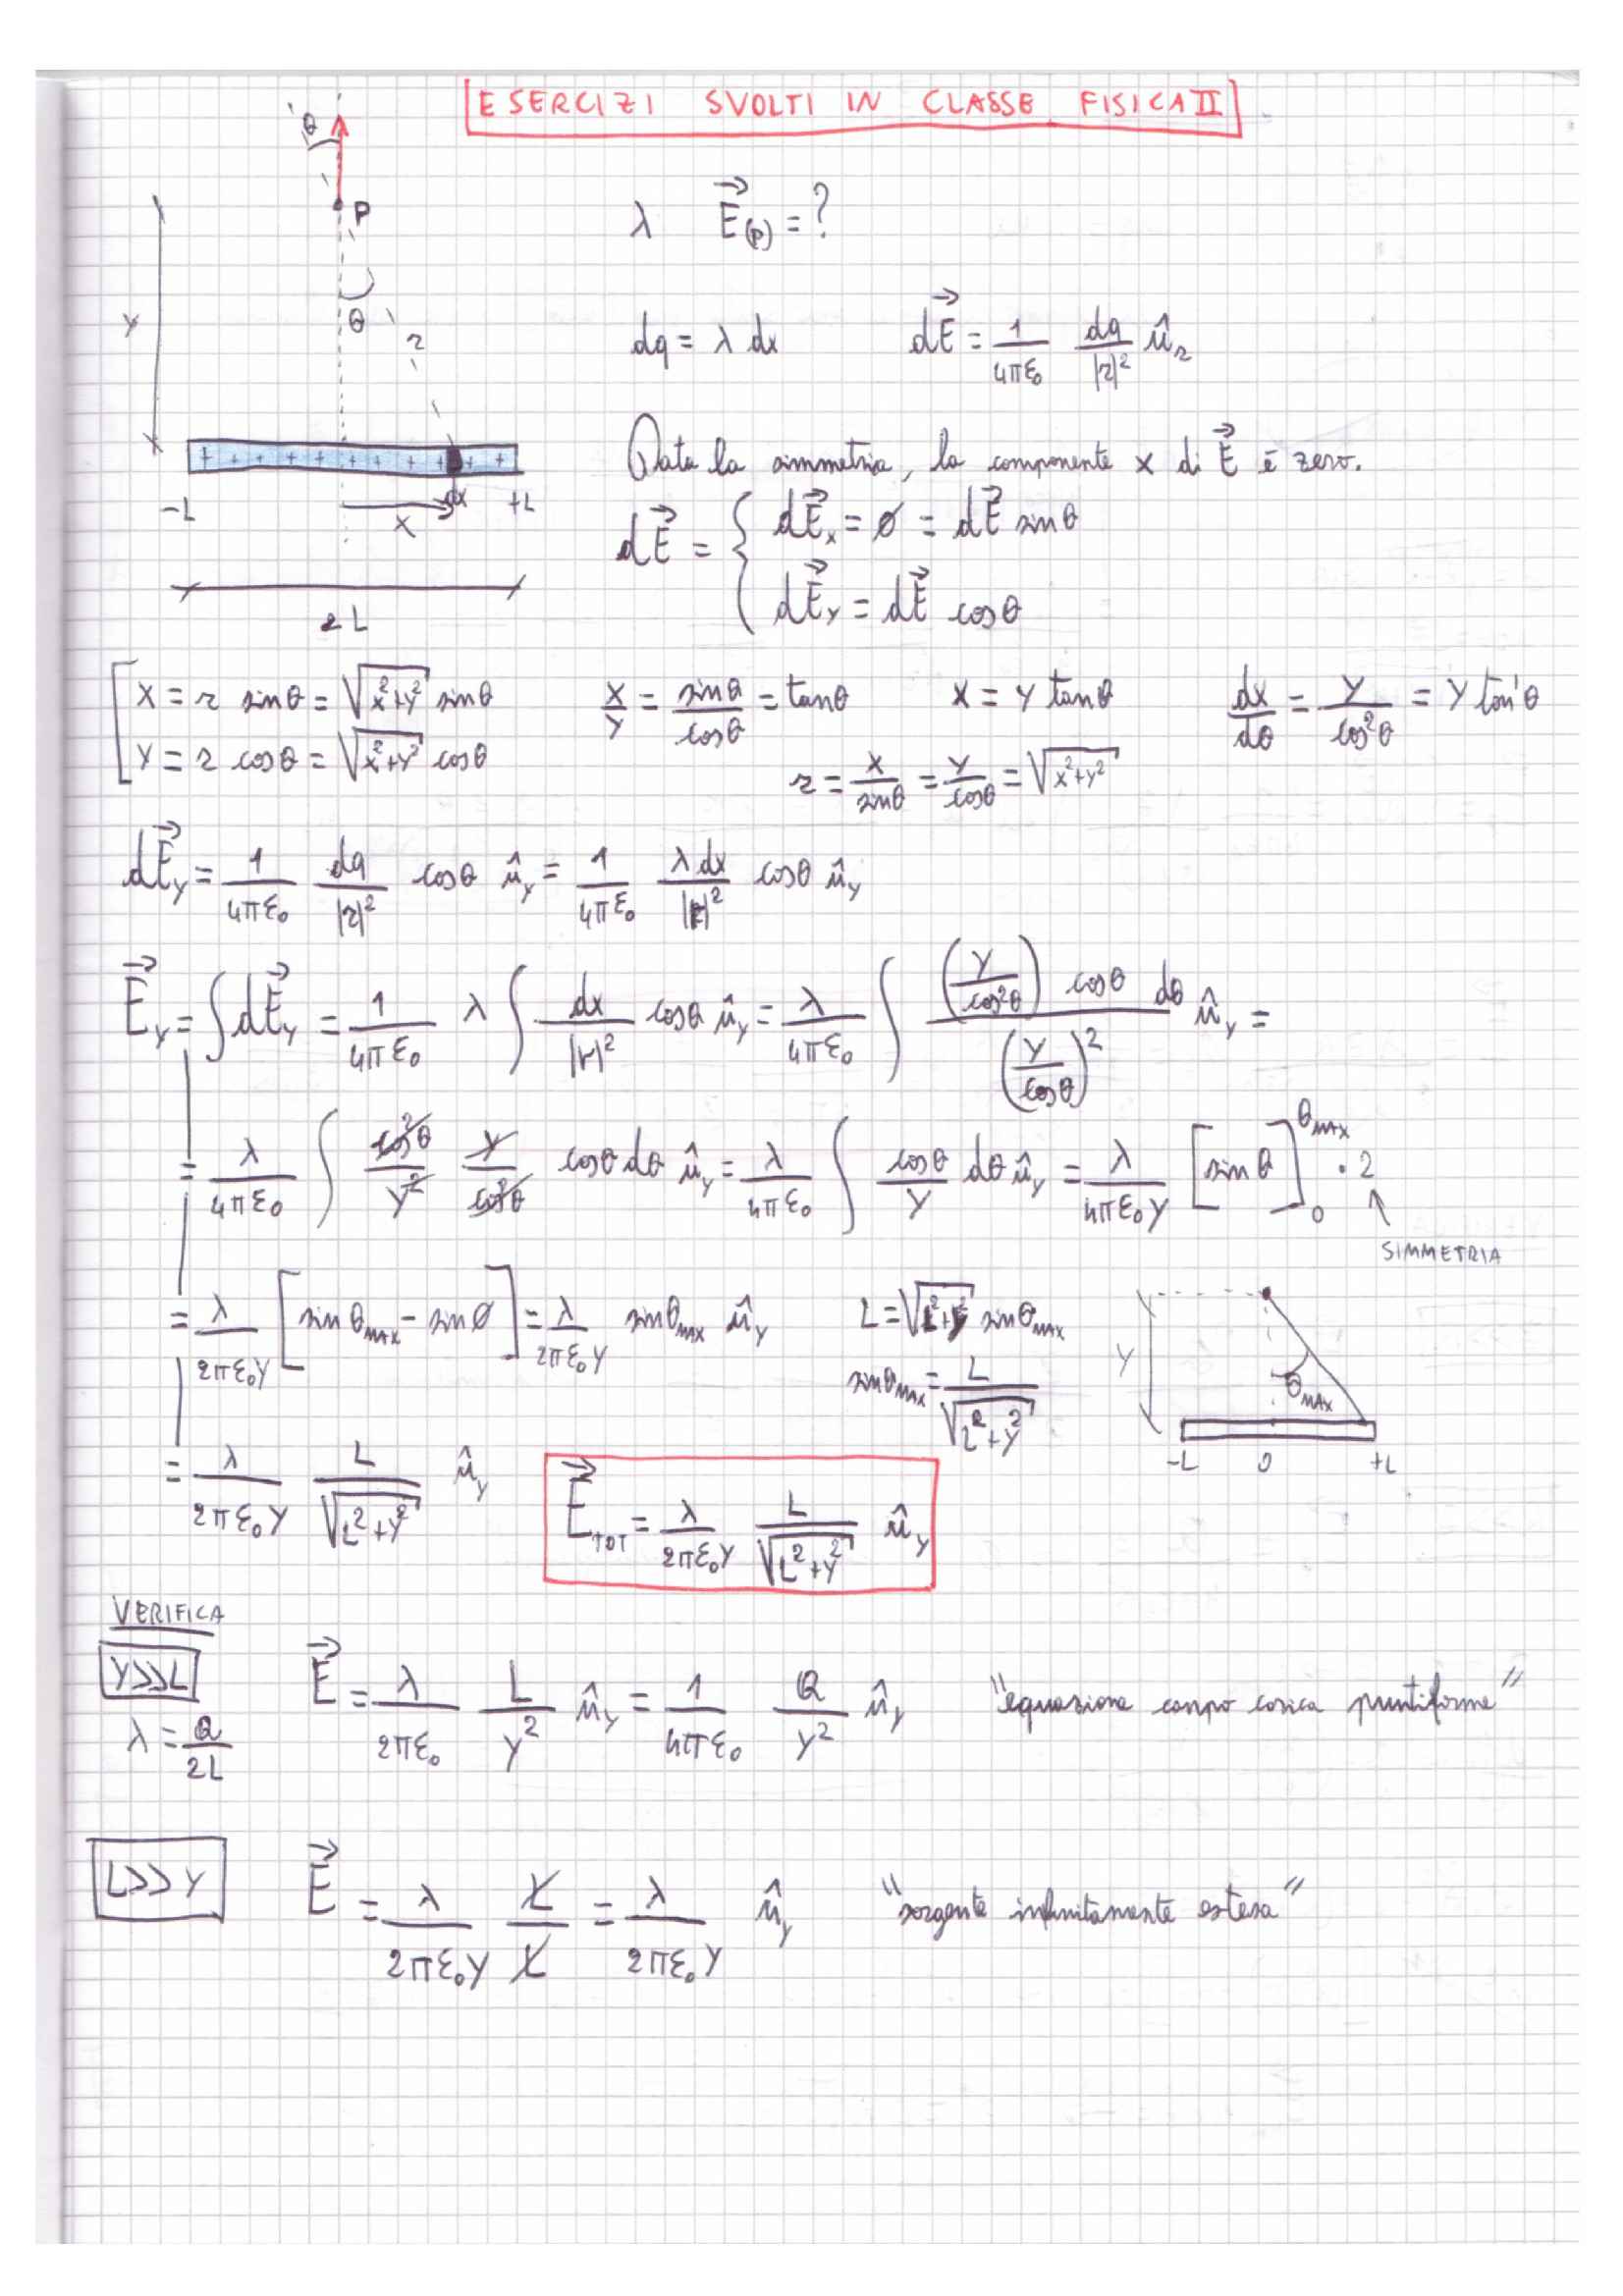 ESERCIZI SVOLTI IN CLASSE FISICA II
θ
P
λ E⃗(P) = ?
y
θ
r
dq = λ dx dE⃗ = 1/4πε₀ dq/|r|² û_r
+ + + + + + + + + +
Data la simmetria, la componente x di E⃗ è zero.
-L x dx +L
dE⃗ = { dE⃗x = ∅ = dE⃗ sinθ
dE⃗y = dE⃗ cosθ
2L
x = r sinθ = √(x²+y²) sinθ x/y = sinθ/cosθ = tanθ x = y tanθ dx/dθ = y/cos²θ = y tan'θ
y = r cosθ = √(x²+y²) cosθ r = x/sinθ = y/cosθ = √(x²+y²)
dE⃗y = 1/4πε₀ dq/|r|² cosθ ûy = 1/4πε₀ λdx/|r|² cosθ ûy
E⃗y = ∫dE⃗y = 1/4πε₀ λ ∫ dx/|r|² cosθ ûy = λ/4πε₀ ∫ (y/cos²θ) cosθ dθ/(y/cosθ)² ûy =
= λ/4πε₀ ∫ cos²θ/y² y/cos²θ cosθ dθ ûy = λ/4πε₀ ∫ cosθ/y dθ ûy = λ/4πε₀y [sinθ]₀^θMAX · 2
SIMMETRIA
= λ/2πε₀y [sinθMAX - sin∅] = λ/2πε₀y sinθMAX ûy L = √(L²+y²) sinθMAX
sinθMAX = L/√(L²+y²)
y θMAX
-L 0 +L
= λ/2πε₀y L/√(L²+y²) ûy E⃗TOT = λ/2πε₀y L/√(L²+y²) ûy
VERIFICA
y>>L E⃗ = λ/2πε₀ L/y² ûy = 1/4πε₀ Q/y² ûy "equazione campo carica puntiforme"
λ = Q/2L
L>>y E⃗ = λ/2πε₀y L/L = λ/2πε₀y ûy "sorgente infinitamente estesa"